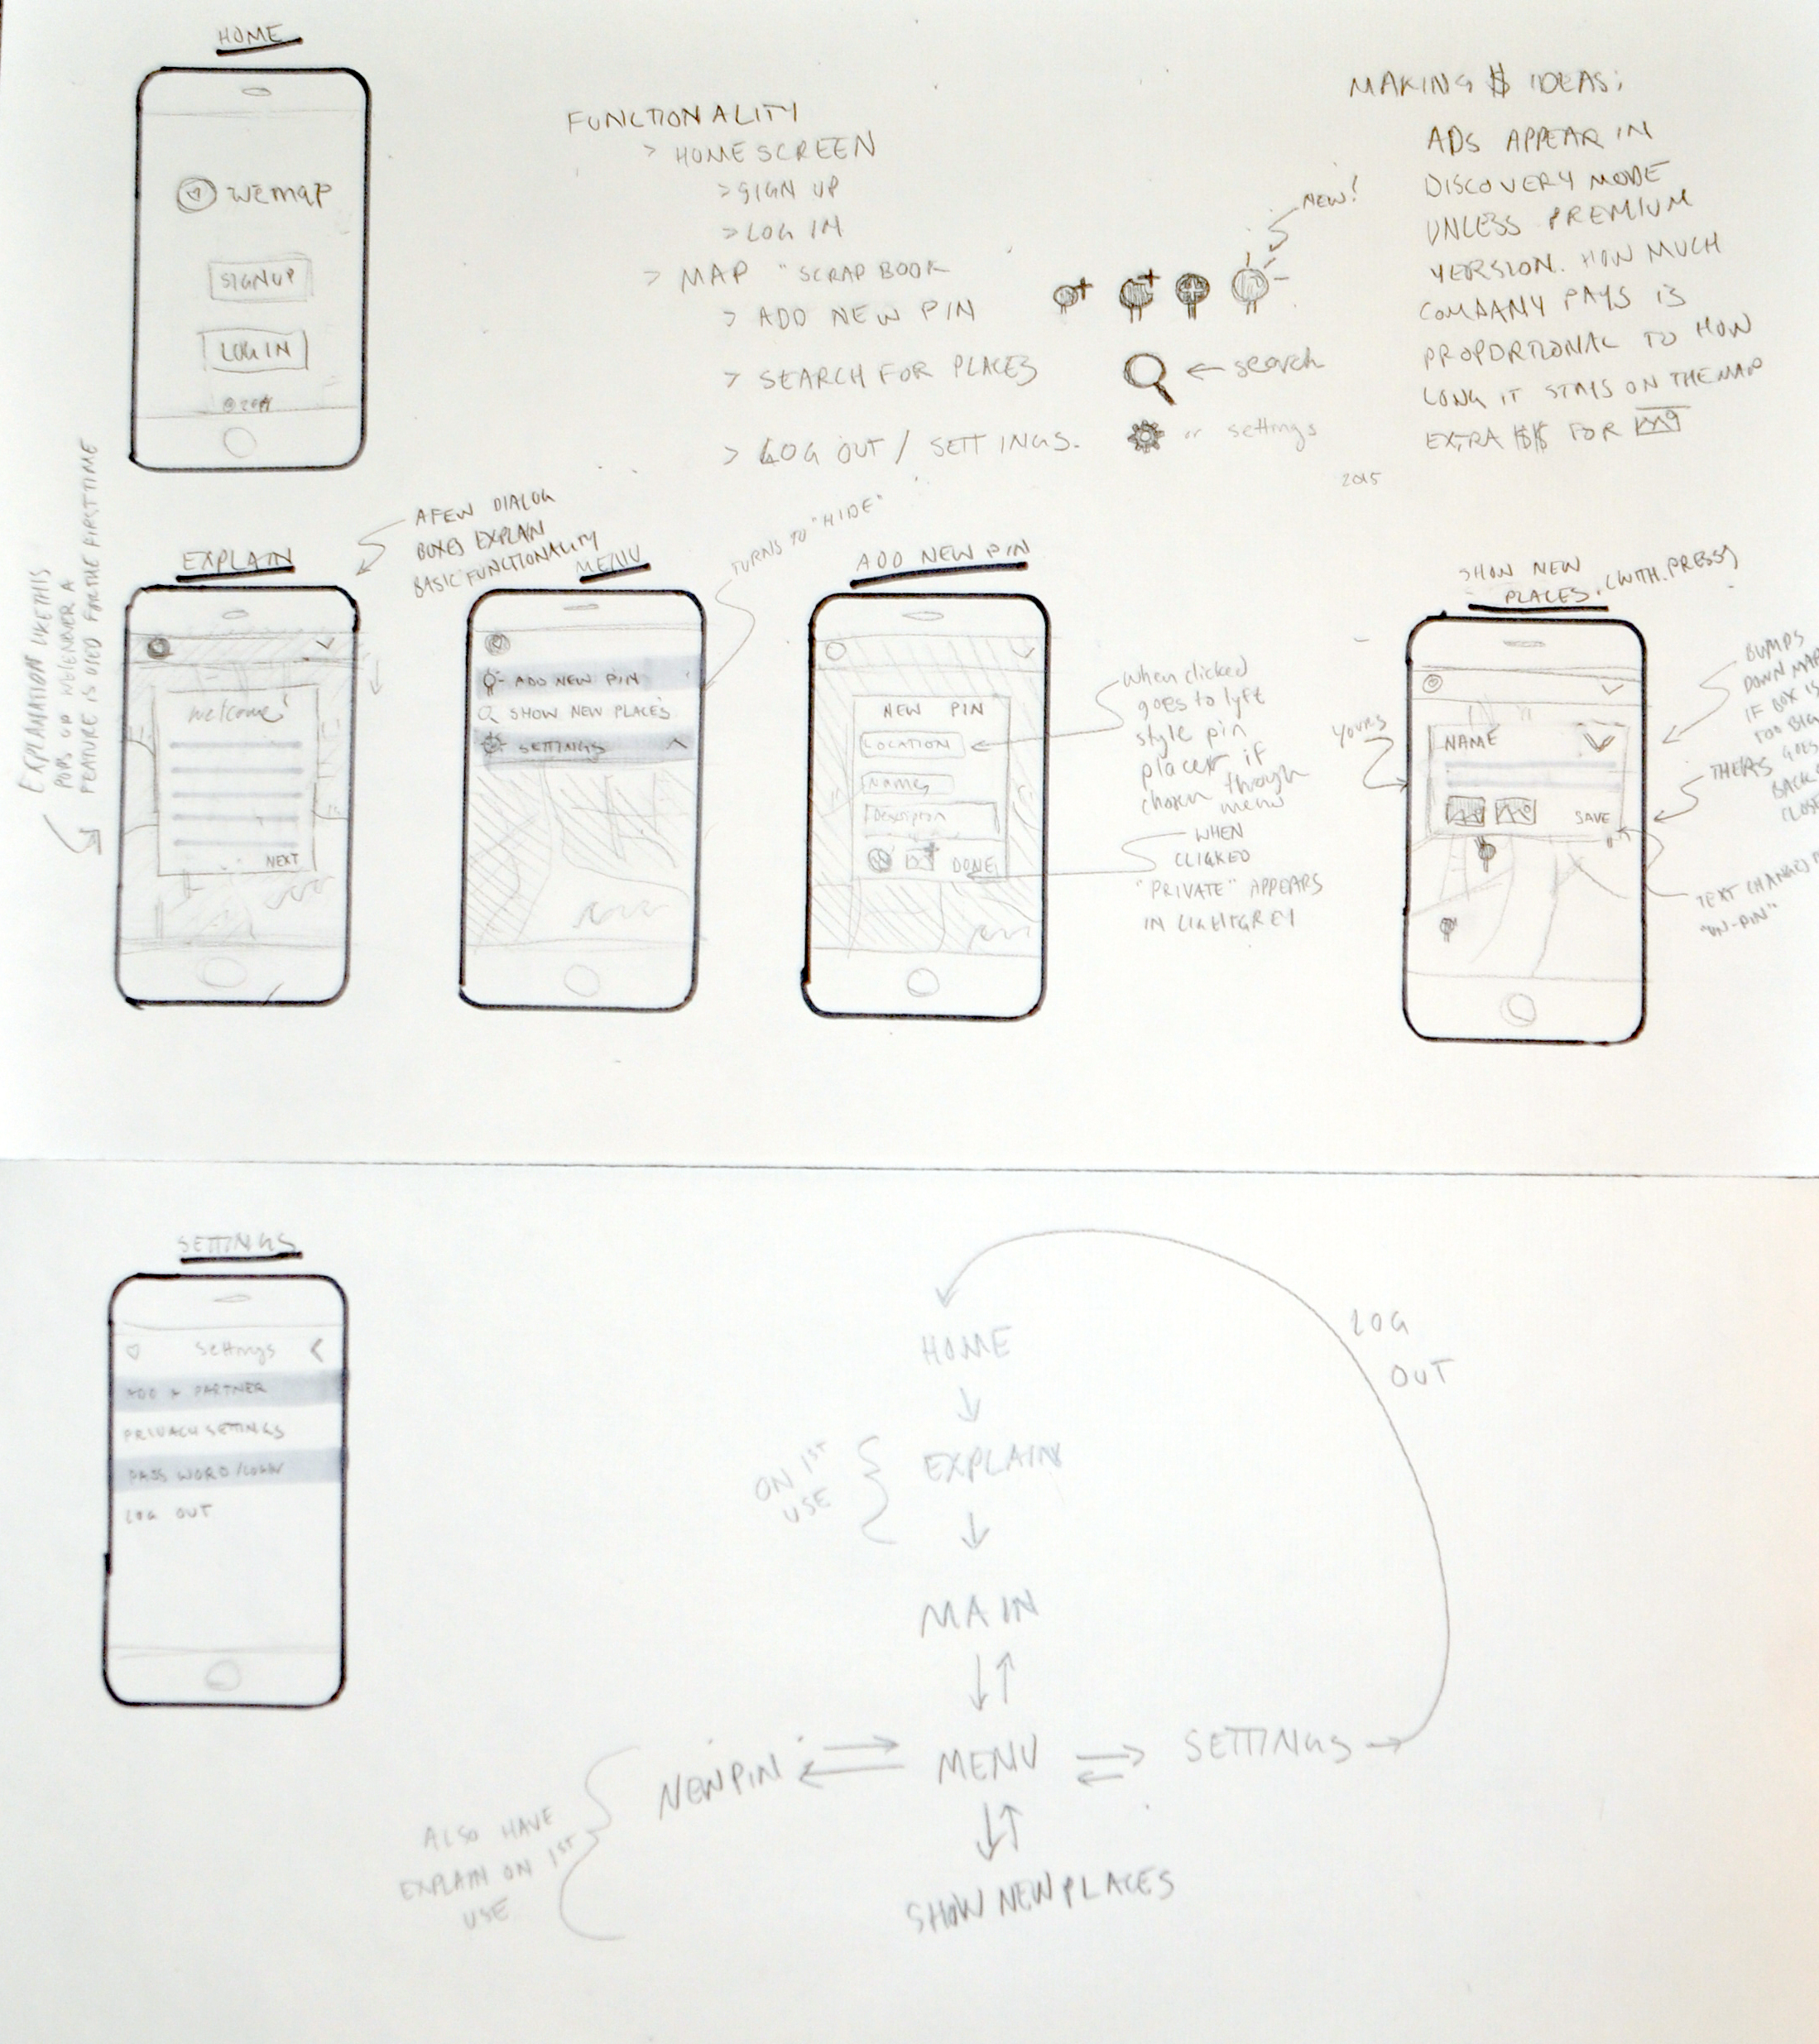 HOME
wemap
SIGN UP
LOG IN
FUNCTIONALITY
> HOME SCREEN
> SIGN UP
> LOG IN
> MAP "SCRAP BOOK
> ADD NEW PIN
> SEARCH FOR PLACES
> LOG OUT / SETTINGS.
NEW!
← search
or settings
MAKING $ IDEAS:
ADS APPEAR IN
DISCOVERY MODE
UNLESS PREMIUM
VERSION. HOW MUCH
COMPANY PAYS IS
PROPORTIONAL TO HOW
LONG IT STAYS ON THE MAP
EXTRA $$ FOR
2015
EXPLANATION LIKE THIS
POPS UP WHENEVER A
FEATURE IS USED FOR THE FIRST TIME
EXPLAIN
A FEW DIALOG
BOXES EXPLAIN
BASIC FUNCTIONALITY
welcome!
NEXT
MENU
TURNS TO "HIDE"
ADD NEW PIN
SHOW NEW PLACES
SETTINGS
ADD NEW PIN
NEW PIN
LOCATION
NAMES
Description
DONE
when clicked
goes to lyft
style pin
placer if
chosen through
menu
WHEN
CLICKED
"PRIVATE" APPEARS
IN LIGHT GREY
SHOW NEW
PLACES. (WITH PRESS)
YOURS
NAME
SAVE
BUMPS
DOWN
IF BOX IS
TOO BIG
THEN GOES
BACK
TEXT CHANGES
"UN-PIN"
SETTINGS
settings
ADD A PARTNER
PRIVACY SETTINGS
PASS WORD / LOGIN
LOG OUT
HOME
LOG
OUT
ON 1ST
USE
EXPLAIN
MAIN
NEW PIN
MENU
SETTINGS
ALSO HAVE
EXPLAIN ON 1ST
USE
SHOW NEW PLACES